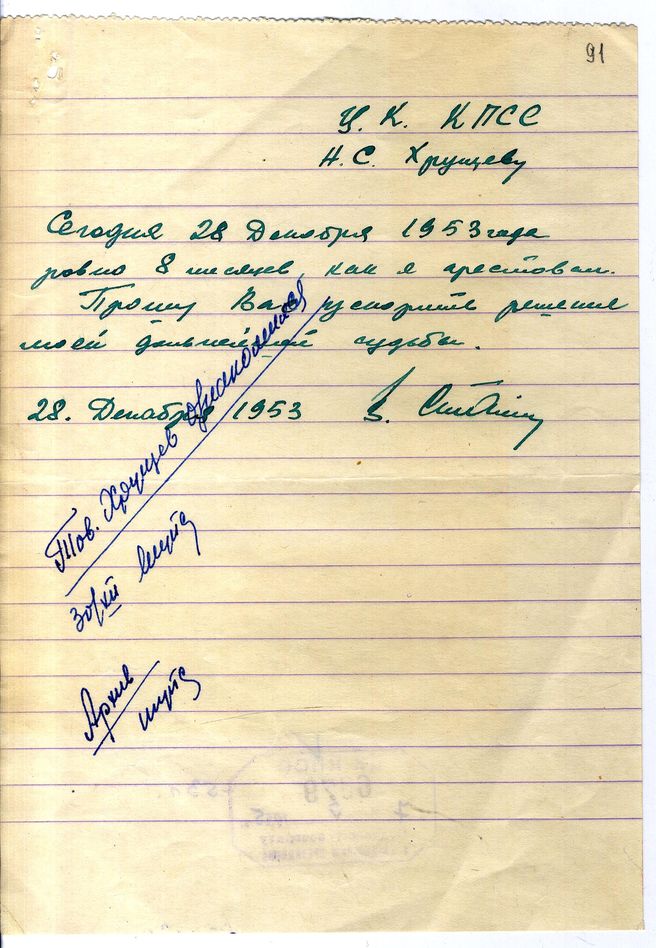 91
Ц. К. КПСС
Н. С. Хрущеву
Сегодня 28 Декабря 1953 года
ровно 8 месяцев как я арестован.
Прошу Вас ускорить решение
моей дальнейшей судьбы.
28. Декабря 1953 В. Сталин
Тов. Хрущев ознакомился
30/XII
Архив